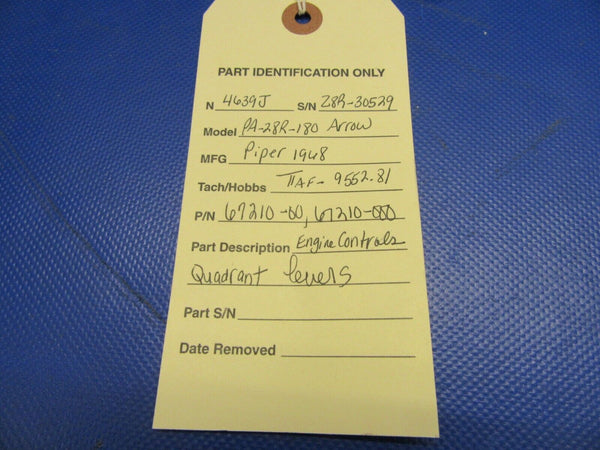 PART IDENTIFICATION ONLY
N 4639J S/N 28R-30529
Model PA-28R-180 Arrow
MFG Piper 1968
Tach/Hobbs TTAF- 9552.81
P/N 67210-00, 67210-000
Part Description Engine Controls
Quadrant levers
Part S/N
Date Removed